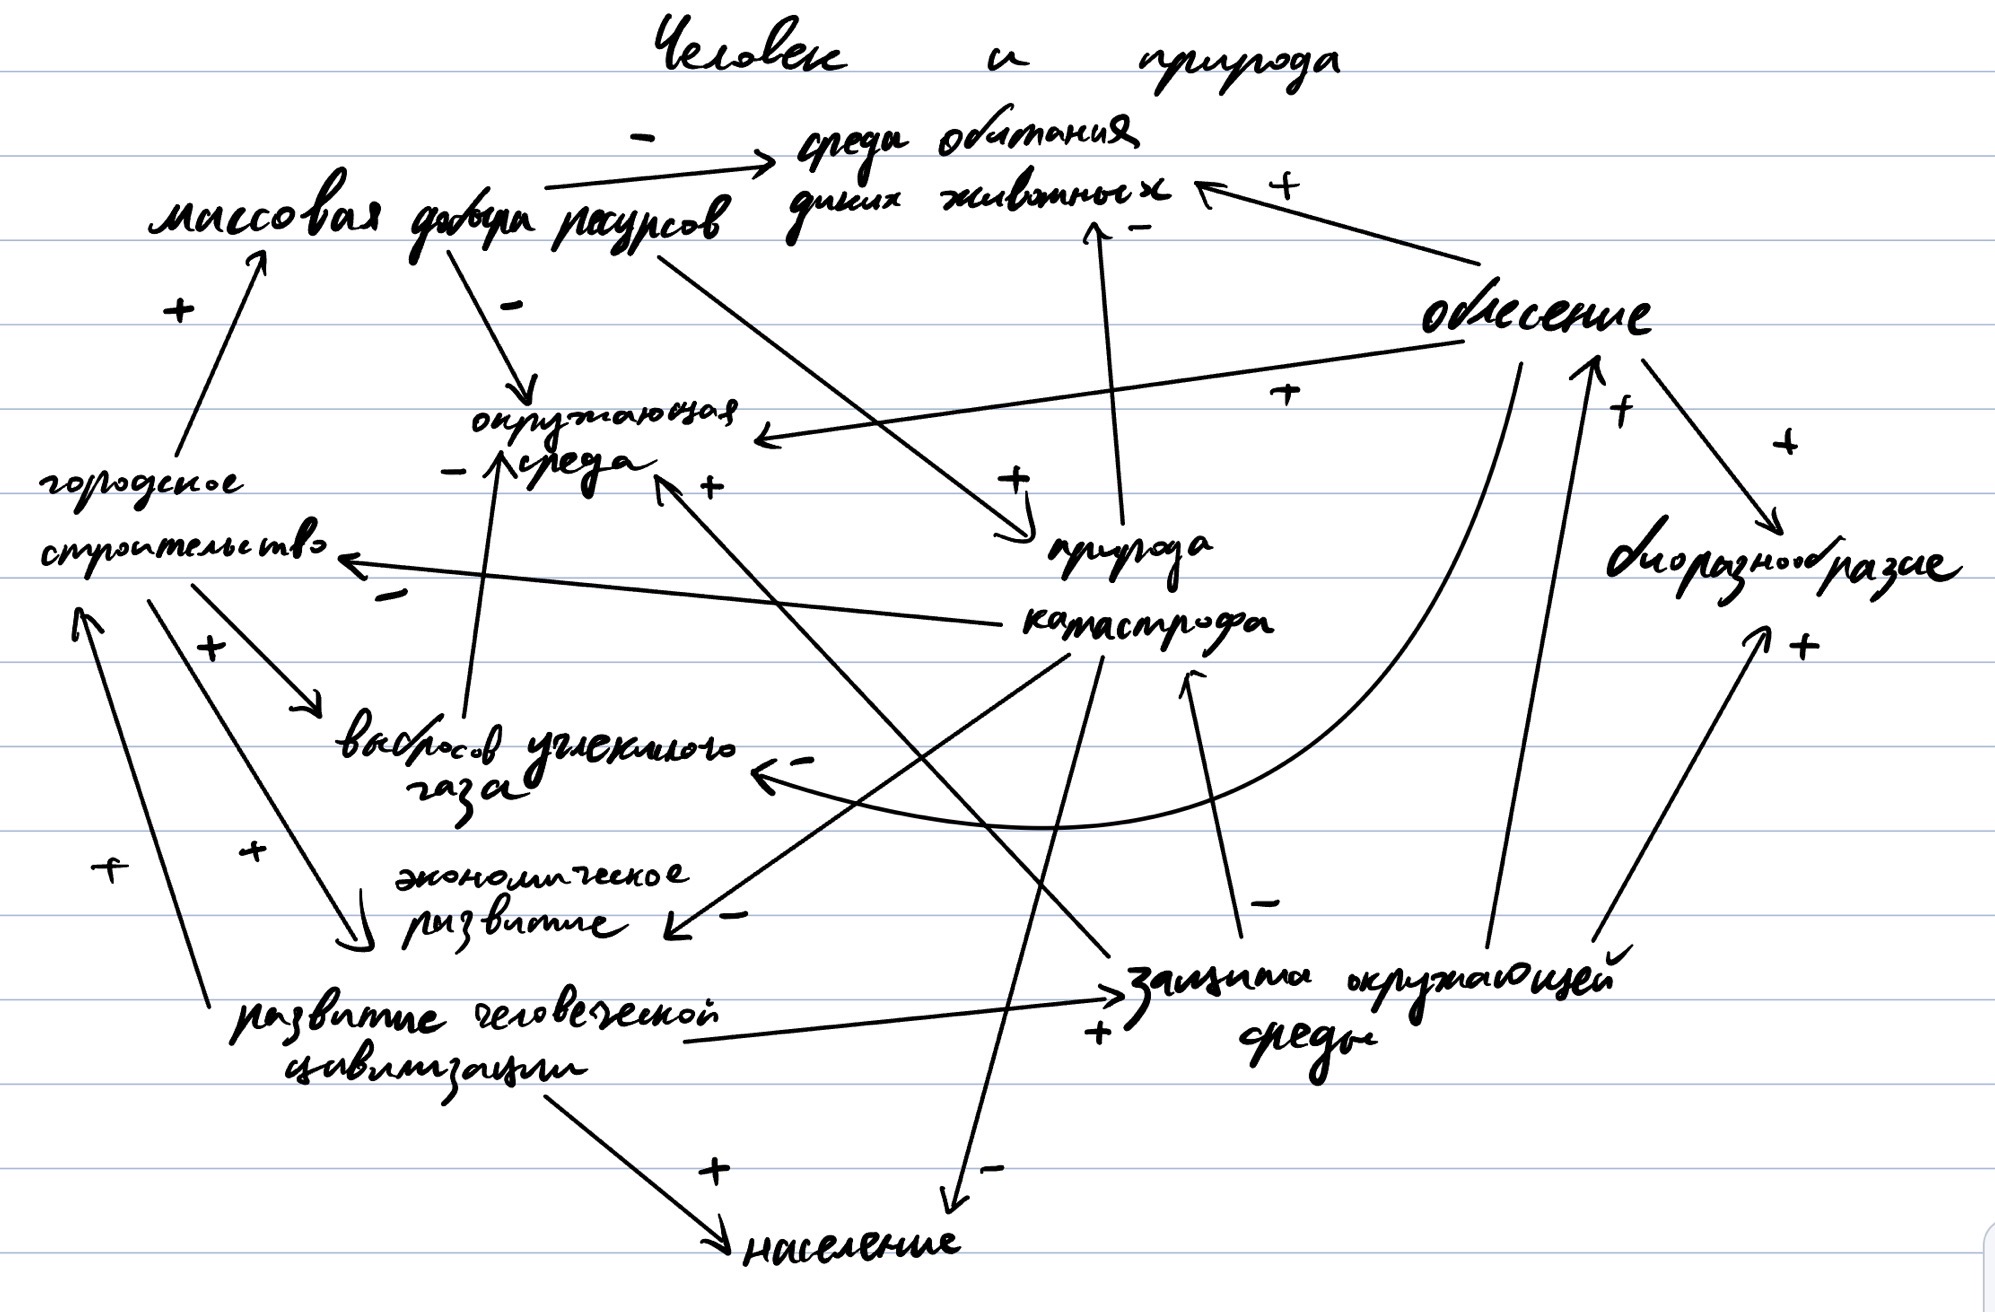 Человек и природа
среда обитания
диких животных
массовая добыча ресурсов
-
+
-
+
-
облесение
окружающая
среда
+
+
+
-
+
+
городское
строительство
природа
катастрофа
биоразнообразие
-
+
+
выбросов углекислого
газа
-
+
+
экономическое
развитие
-
-
защита окружающей
среды
развитие человеческой
цивилизации
+
+
-
население